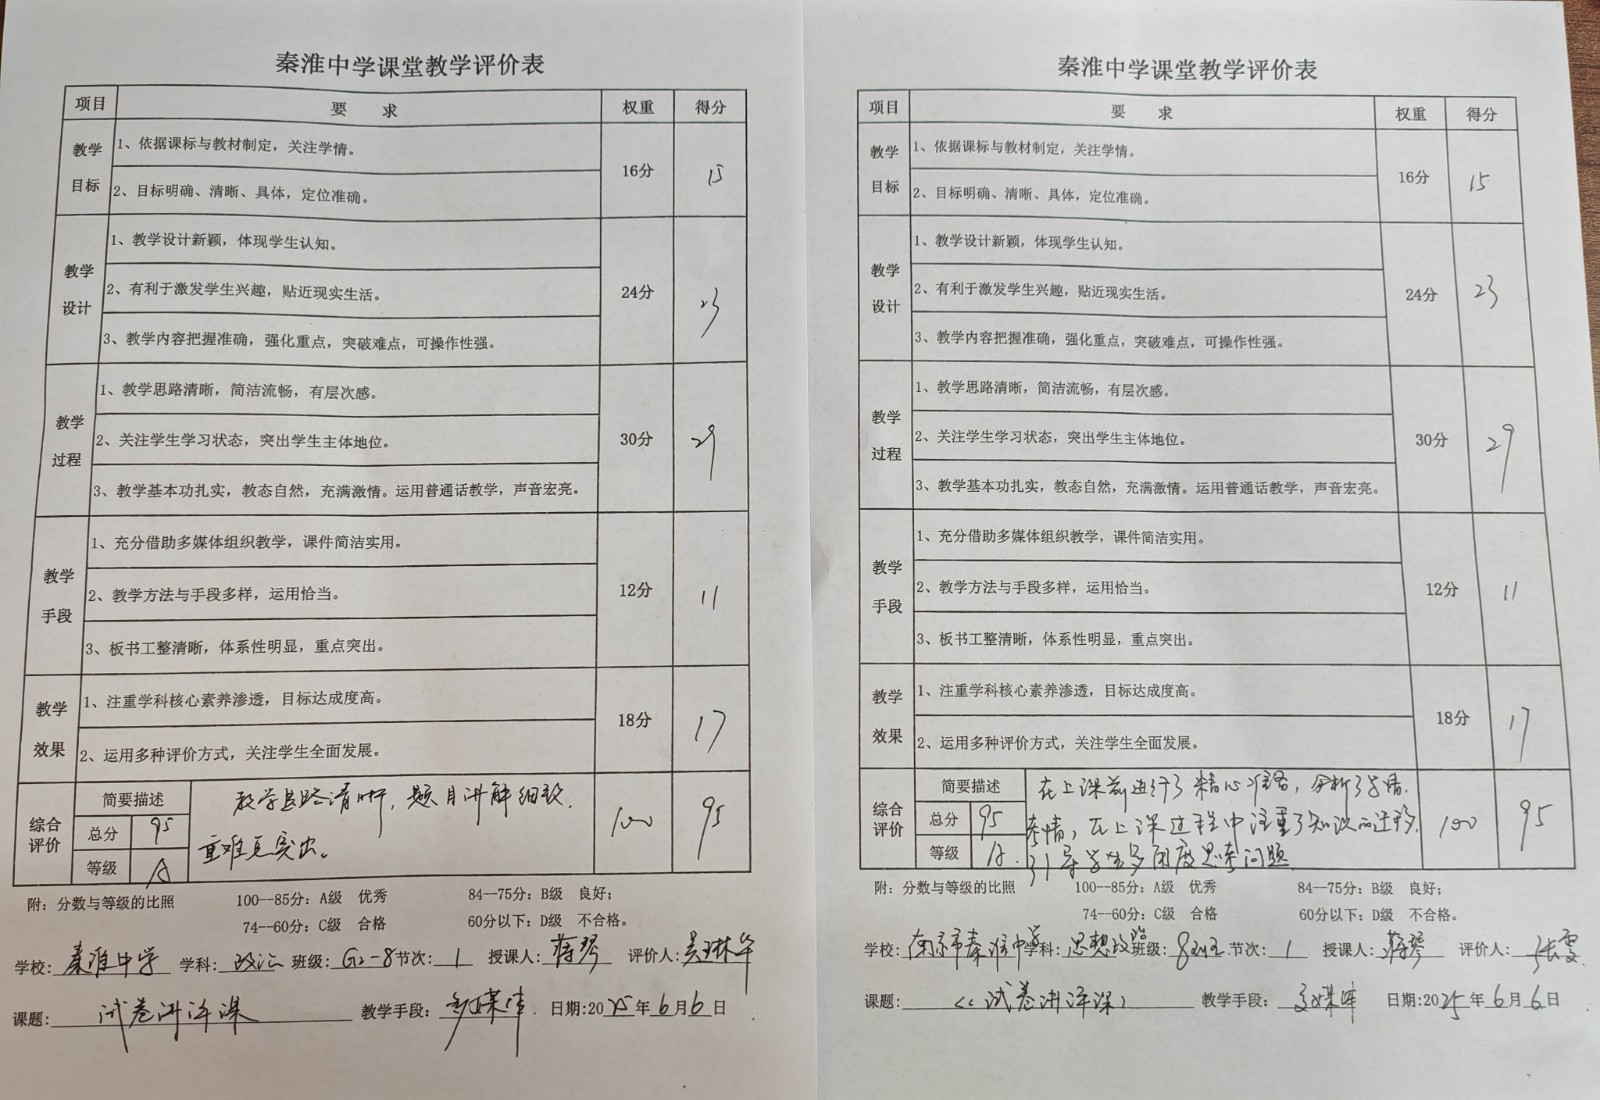 秦淮中学课堂教学评价表
项目 要 求 权重 得分
教学目标 1、依据课标与教材制定，关注学情。 16分 15
2、目标明确、清晰、具体，定位准确。
教学设计 1、教学设计新颖，体现学生认知。 24分 23
2、有利于激发学生兴趣，贴近现实生活。
3、教学内容把握准确，强化重点，突破难点，可操作性强。
教学过程 1、教学思路清晰，简洁流畅，有层次感。 30分 29
2、关注学生学习状态，突出学生主体地位。
3、教学基本功扎实，教态自然，充满激情。运用普通话教学，声音宏亮。
教学手段 1、充分借助多媒体组织教学，课件简洁实用。 12分 11
2、教学方法与手段多样，运用恰当。
3、板书工整清晰，体系性明显，重点突出。
教学效果 1、注重学科核心素养渗透，目标达成度高。 18分 17
2、运用多种评价方式，关注学生全面发展。
综合评价 简要描述 教学思路清晰，题目讲解细致， 100 95
总分 95 重难点突出。
等级 A
附：分数与等级的比照 100--85分：A级 优秀 84--75分：B级 良好；
74--60分：C级 合格 60分以下：D级 不合格。
学校：秦淮中学 学科：政治 班级：G2-8 节次：1 授课人：蒋琴 评价人：吴琳华
课题：试卷讲评课 教学手段：多媒体 日期：2025年6月6日
秦淮中学课堂教学评价表
项目 要 求 权重 得分
教学目标 1、依据课标与教材制定，关注学情。 16分 15
2、目标明确、清晰、具体，定位准确。
教学设计 1、教学设计新颖，体现学生认知。 24分 23
2、有利于激发学生兴趣，贴近现实生活。
3、教学内容把握准确，强化重点，突破难点，可操作性强。
教学过程 1、教学思路清晰，简洁流畅，有层次感。 30分 29
2、关注学生学习状态，突出学生主体地位。
3、教学基本功扎实，教态自然，充满激情。运用普通话教学，声音宏亮。
教学手段 1、充分借助多媒体组织教学，课件简洁实用。 12分 11
2、教学方法与手段多样，运用恰当。
3、板书工整清晰，体系性明显，重点突出。
教学效果 1、注重学科核心素养渗透，目标达成度高。 18分 17
2、运用多种评价方式，关注学生全面发展。
综合评价 简要描述 在上课前进行了精心准备，分析了学情、 100 95
总分 95 考情，在上课过程中注重了知识的迁移，
等级 A. 引导学生多角度思考问题
附：分数与等级的比照 100--85分：A级 优秀 84--75分：B级 良好；
74--60分：C级 合格 60分以下：D级 不合格。
学校：南京市秦淮中学 学科：思想政治 班级：8班 节次：1 授课人：蒋琴 评价人：张雯
课题：《试卷讲评课》 教学手段：多媒体 日期：2025年6月6日